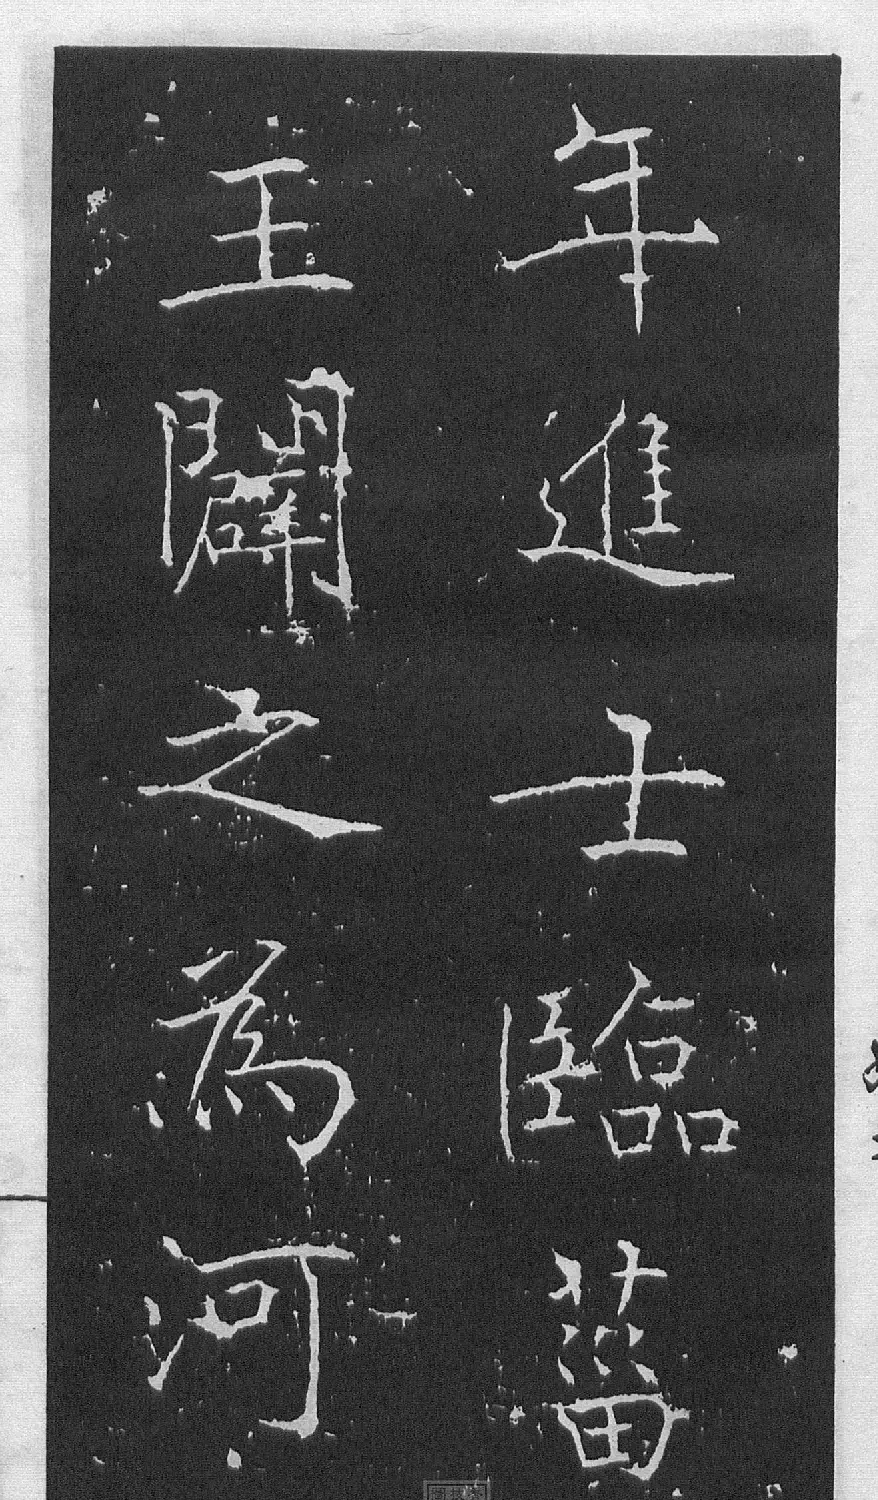 年進士臨菑
王闢之為河